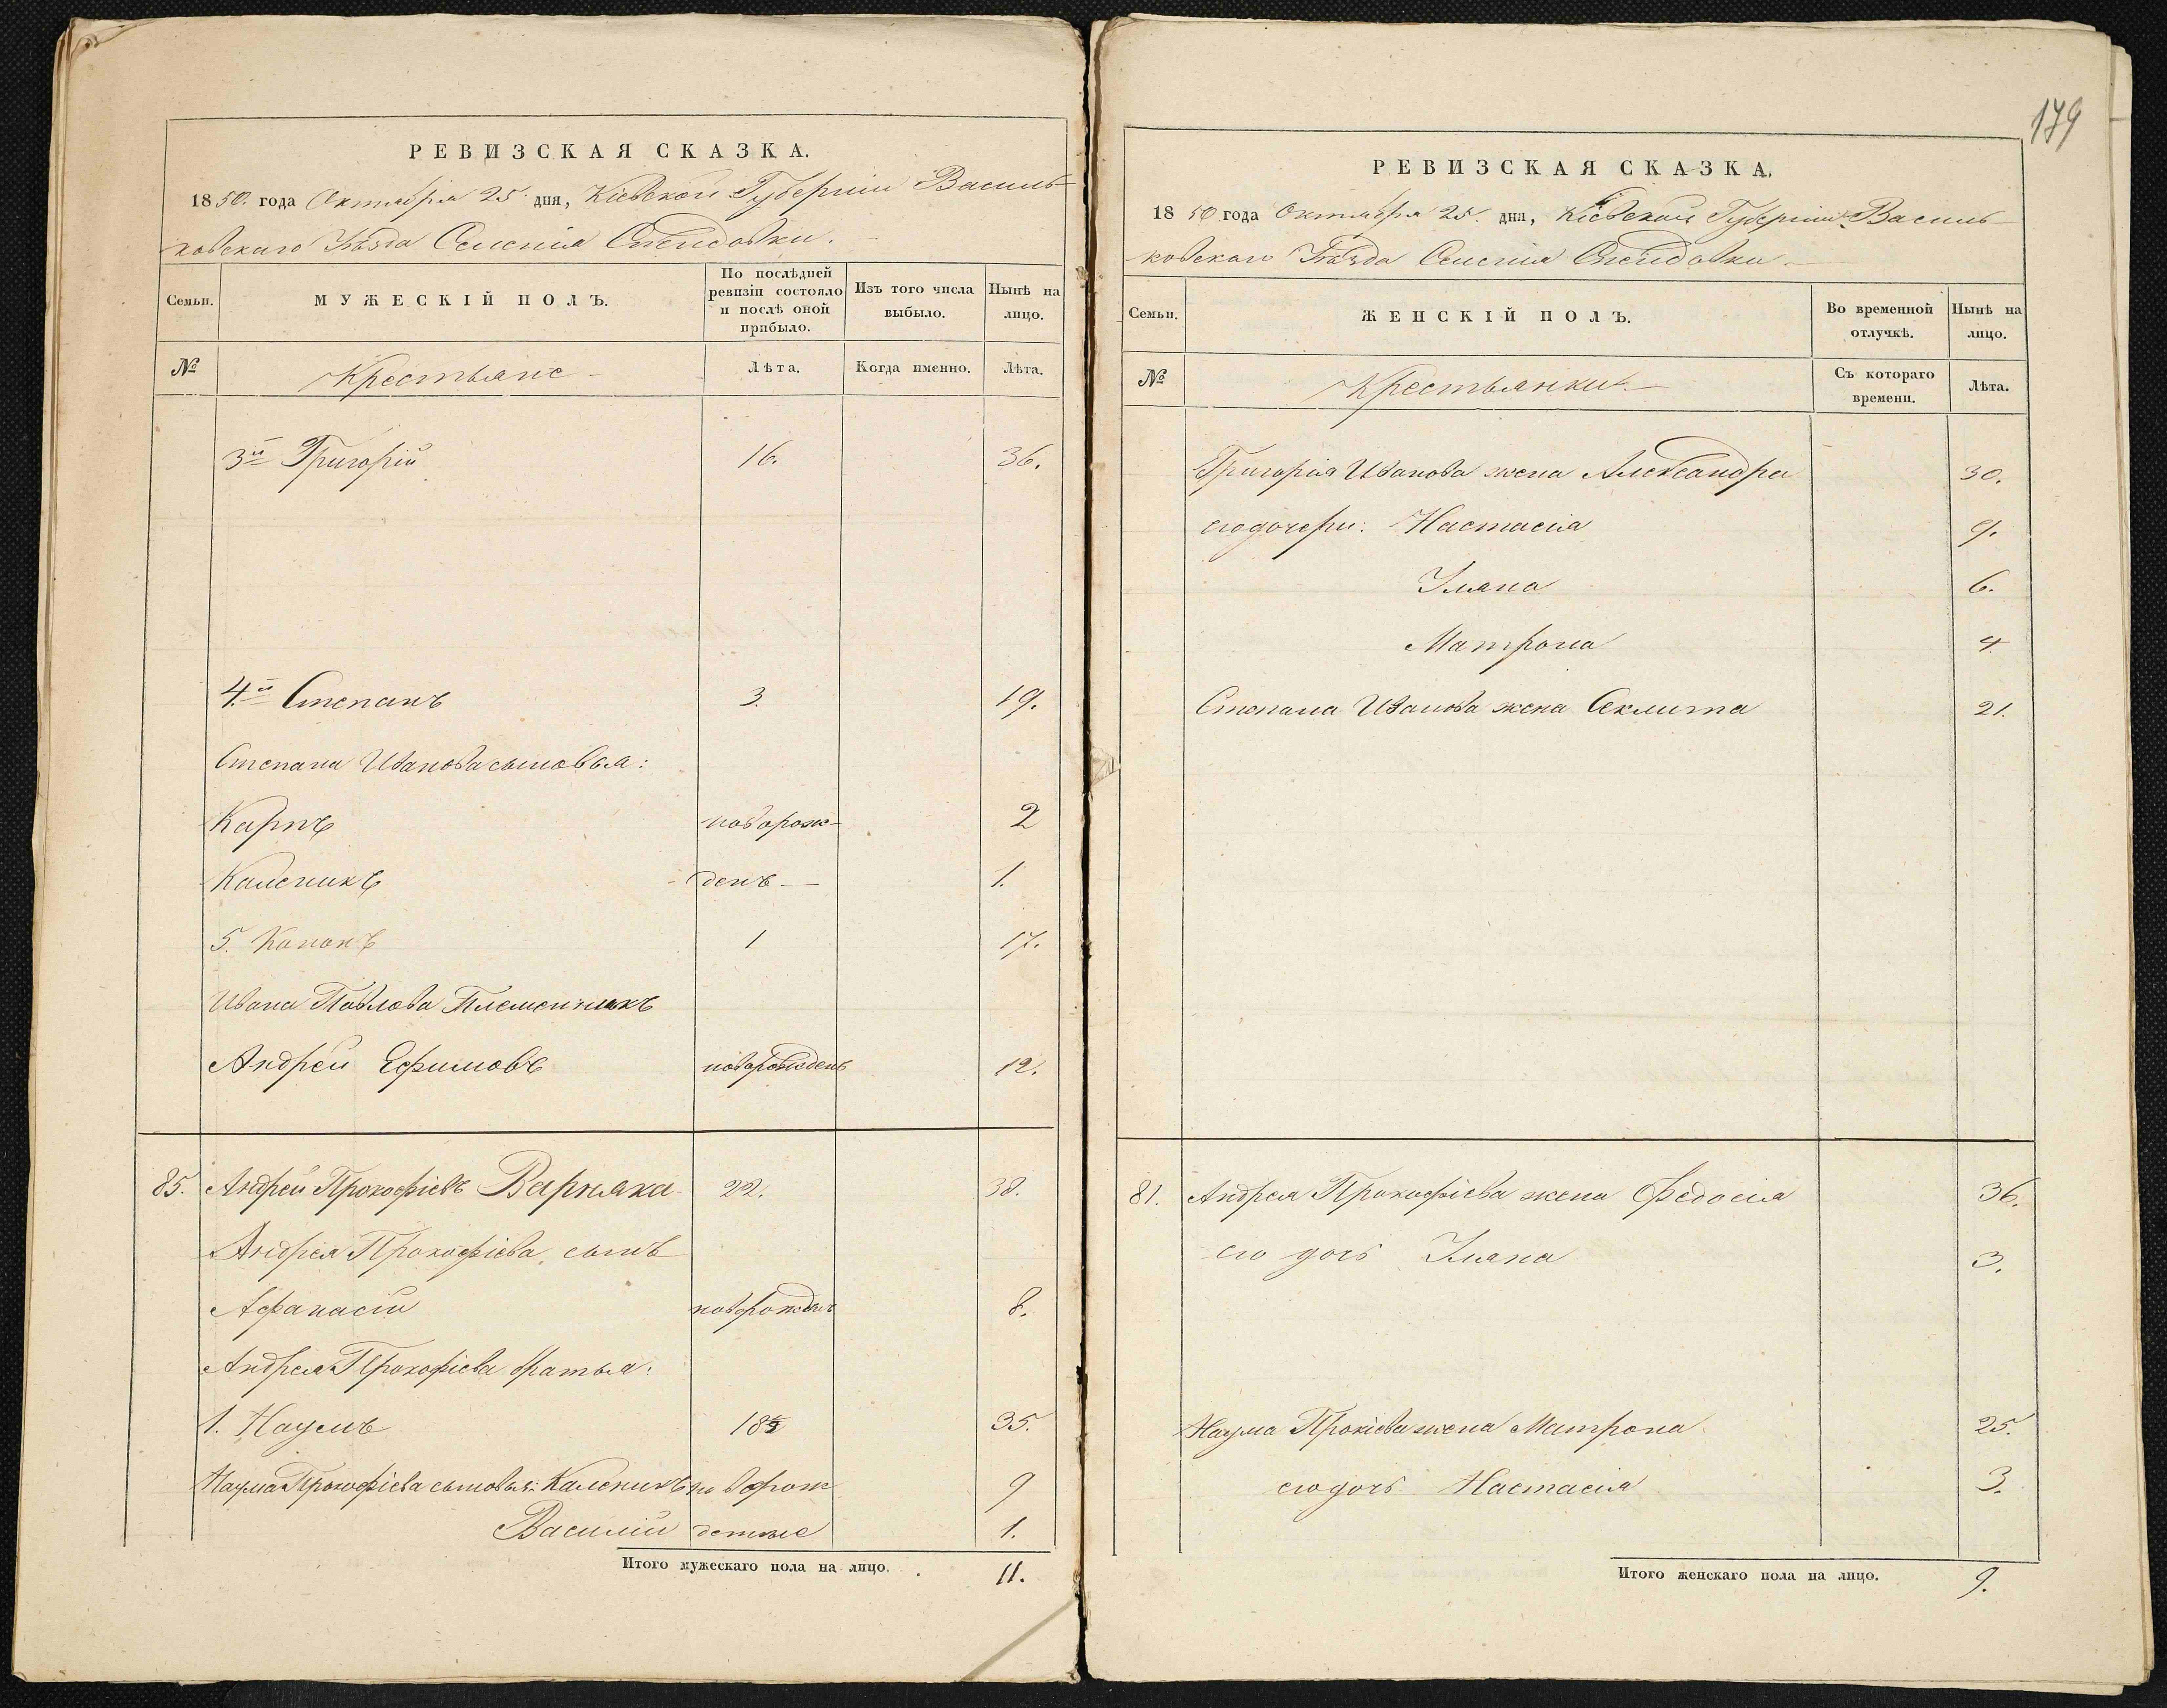 179
РЕВИЗСКАЯ СКАЗКА.
1850. года Октября 25. дня, Кіевской Губерніи Василь-
ковскаго Уѣзда Селенія
Семьи.
МУЖЕСКІЙ ПОЛЪ.
По послѣдней ревизіи состояло и послѣ оной прибыло.
Изъ того числа выбыло.
Нынѣ на лицо.
№
Крестьяне
Лѣта.
Когда именно.
Лѣта.
3й Григорій 16. 36.
4.й Степанъ 3. 19.
Степана Иванова сыновья:
Карпъ новорож- 2
Каленикъ денъ 1.
5. Кононъ 1 17.
Ивана Павлова Племенникъ
Андрей Ефимовъ новорожденъ 12.
85. Андрей Прокофіевъ Варняка 22. 38.
Андрея Прокофіева сынъ
Афанасій новорожденъ 8.
Андрея Прокофіева братья:
1. Наумъ 35.
Наума Прокофіева сыновья: Каленикъ новорож 9
Василій денные 1.
Итого мужескаго пола на лицо. 11.
РЕВИЗСКАЯ СКАЗКА.
1850 года Октября 25. дня, Кіевской Губерніи Василь
ковскаго Уѣзда Селенія
Семьи.
ЖЕНСКІЙ ПОЛЪ.
Во временной отлучкѣ.
Нынѣ на лицо.
№
Крестьянки
Съ котораго времени.
Лѣта.
Григорія Иванова жена Александра 30.
его дочери: Настасія 9.
Уляна 6.
Матрона 4
Степана Иванова жена Секлита 21.
81. Андрея Прокофіева жена Федосія 36.
его дочь Уляна 3.
Наума Прокіева жена Матрона 25.
его дочь Настасія 3.
Итого женскаго пола на лицо. 9.